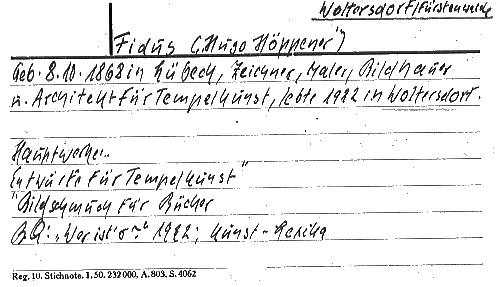 Woltersdorf/Fürstenwalde
Fidus ("Hugo Höppener")
Geb. 8.10.1868 in Lübeck, Zeichner, Maler, Bildhauer
u. Architekt für Tempelkunst, lebte 1922 in Woltersdorf.
Hauptwerke:
Entwürfe für Tempelkunst"
"Bildschmuck für Bücher
BQ: "Wer ist's?" 1922; Kunst-
Reg. 10. Stichnote. 1, 50. 232000, A. 803, S. 4062